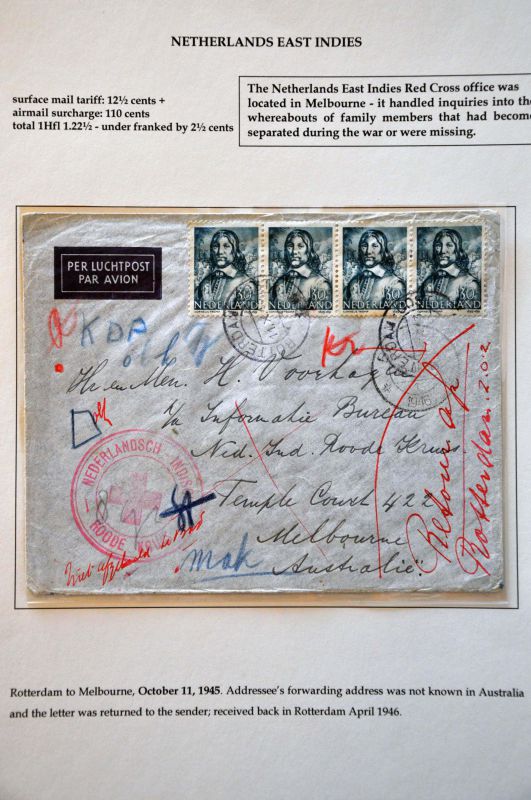 NETHERLANDS EAST INDIES
surface mail tariff: 12½ cents +
airmail surcharge: 110 cents
total 1Hfl 1.22½ - under franked by 2½ cents
The Netherlands East Indies Red Cross office was
located in Melbourne - it handled inquiries into the
whereabouts of family members that had become
separated during the war or were missing.
PER LUCHTPOST
PAR AVION
30 30 30 30
NEDERLAND NEDERLAND NEDERLAND NEDERLAND
ROTTERDAM
1946
KDP
Hr en Mev. H.
p/a Informatie Bureau
Ned. Ind. Roode Kruis
Temple Court 422
Melbourne
Australië.
NEDERLANDSCH INDIS
ROODE
mak
Retour afz
Rotterdam. 202
Rotterdam to Melbourne, October 11, 1945. Addressee's forwarding address was not known in Australia
and the letter was returned to the sender; received back in Rotterdam April 1946.